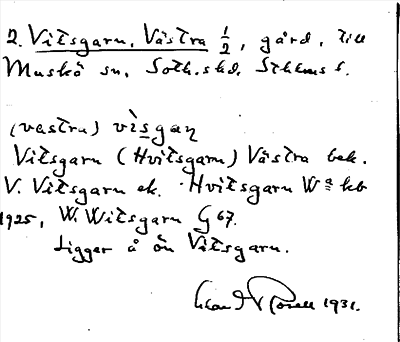 2. Vitsgarn, Västra 1/2, gård, till
Muskö sn, Soth. skd. Sthlms l.
(vastra) vìsgaɳ
Vitsgarn (Hvitsgarn) Västra bek.
V. Vitsgarn ek. Hvitsgarn Wa kb
1925, W. Witsgarn G 67.
Ligger å ön Vitsgarn.
1931.